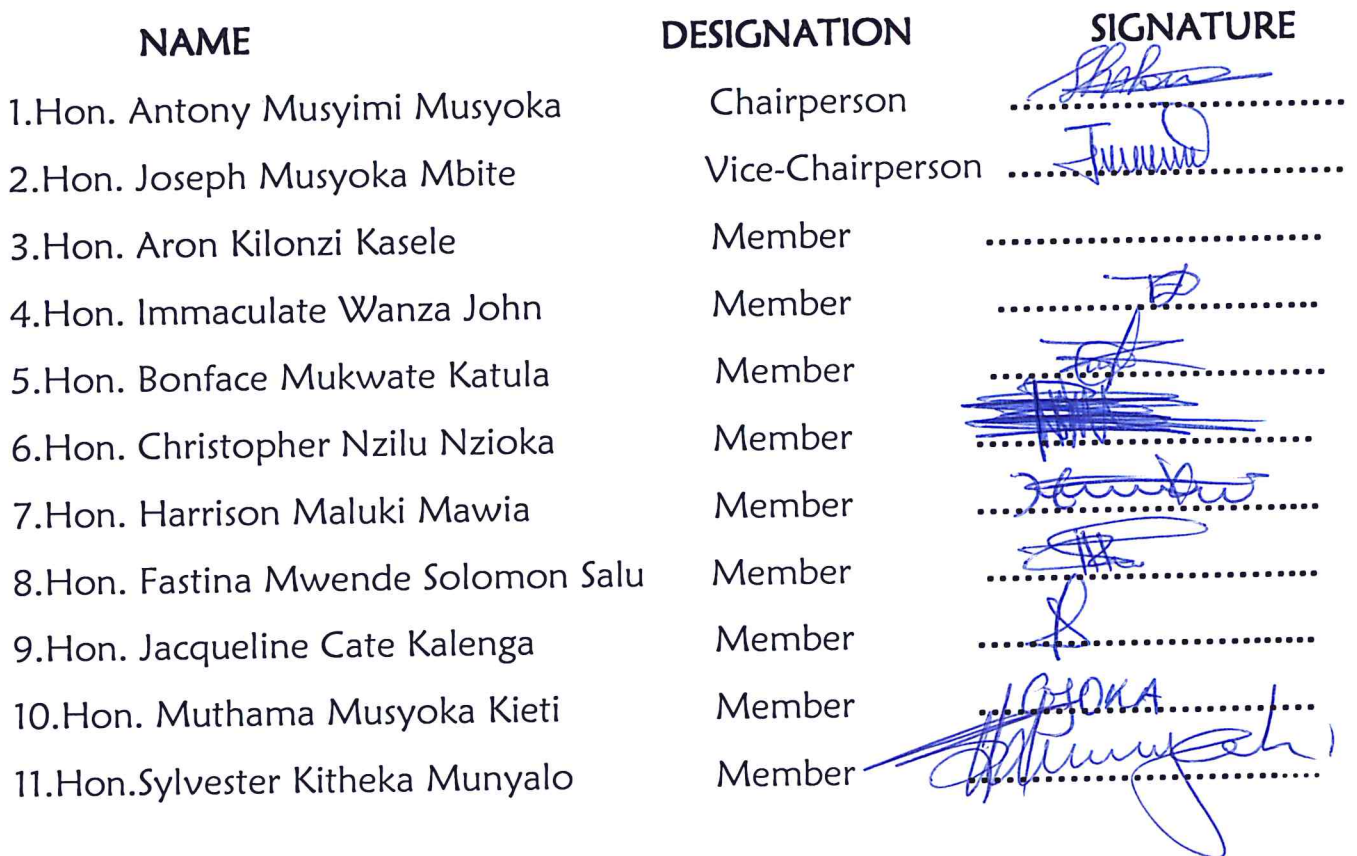 NAME DESIGNATION SIGNATURE
1.Hon. Antony Musyimi Musyoka Chairperson ..............................
2.Hon. Joseph Musyoka Mbite Vice-Chairperson ..............................
3.Hon. Aron Kilonzi Kasele Member ..............................
4.Hon. Immaculate Wanza John Member ..............................
5.Hon. Bonface Mukwate Katula Member ..............................
6.Hon. Christopher Nzilu Nzioka Member ..............................
7.Hon. Harrison Maluki Mawia Member ..............................
8.Hon. Fastina Mwende Solomon Salu Member ..............................
9.Hon. Jacqueline Cate Kalenga Member ..............................
10.Hon. Muthama Musyoka Kieti Member ..............................
11.Hon.Sylvester Kitheka Munyalo Member ..............................